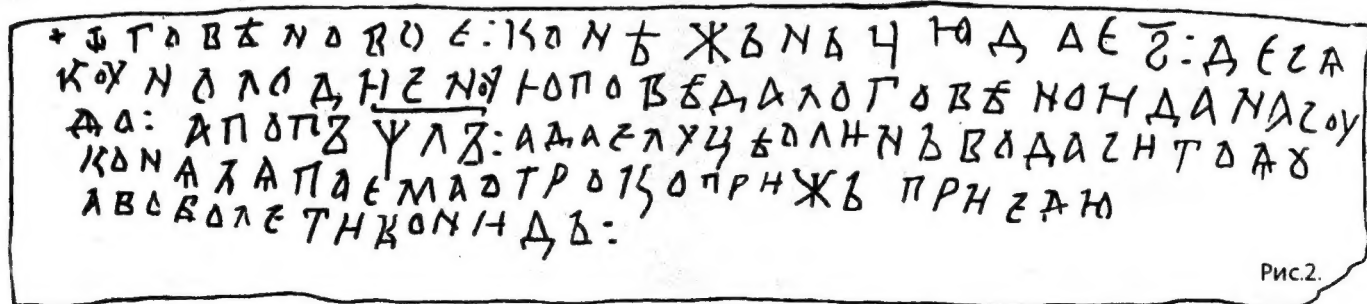 + Ѿ ГОВѢNОВО Е:КОNѢ ЖЬNЬЦ ЮД ДЕ З̅:ДЕСѦ
КОУNОЛОДИЕNОУЮПОВѢДАЛОГОВѢNОИДАNАСОУ
ДО: АПОПЪѰЛЪ:АДАЕЛУЦѢОЛИNЬВОДАСИТОДꙊ
КОNАЪАПОЕМАОТРОКОПРИЖЬ ПРИЕДЮ
АВОБОЛЕТИКОNИДЬ:
Рис.2.